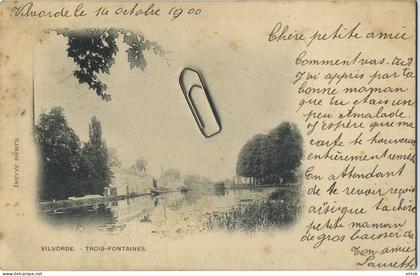 Vilvorde le 14 Octobre 1900
Chère petite amie
Comment vas-tu?
J'ai appris par ta
bonne maman
que tu étais un
peu malade.
J'espère que ma
carte te trouvera
entièrement remise
En attendant
de te revoir reçois
ainsi que ta chère
petite maman
de gros baisers de
ton amie
Laurette
Decrée sœurs
VILVORDE. - TROIS-FONTAINES.